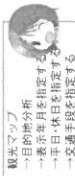 観光マップ
→目的地分析
→表示年月を指定する
→平日・休日を指定する
→交通手段を指定する